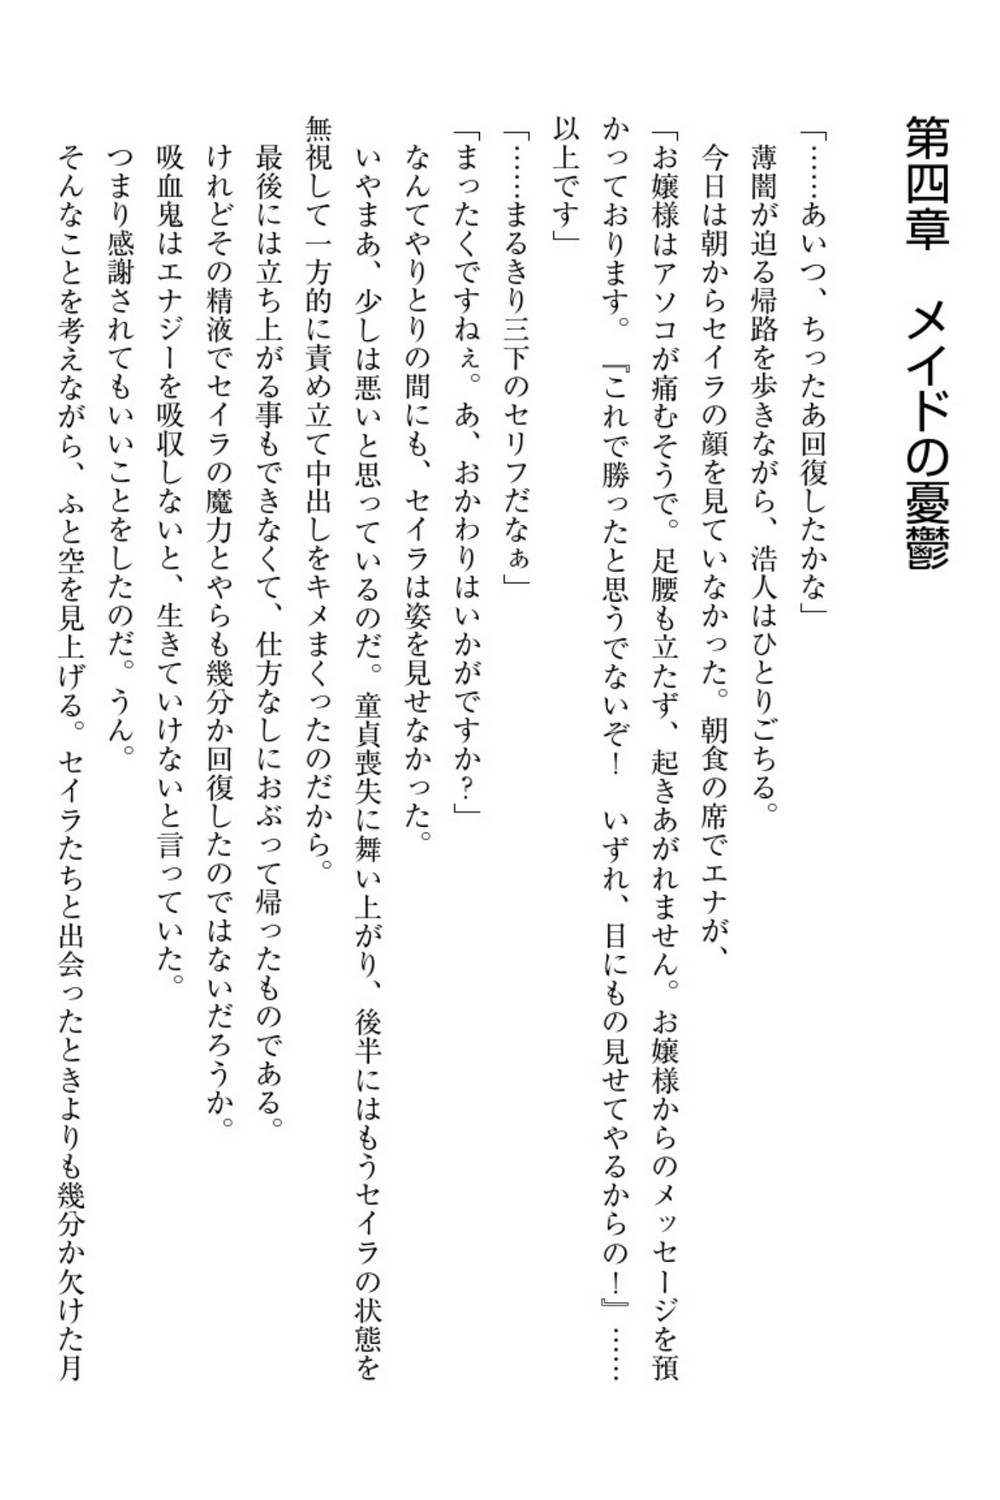 第四章　メイドの憂鬱
「……あいつ、ちったあ回復したかな」
　薄闇が迫る帰路を歩きながら、浩人はひとりごちる。
　今日は朝からセイラの顔を見ていなかった。朝食の席でエナが、
「お嬢様はアソコが痛むそうで。足腰も立たず、起きあがれません。お嬢様からのメッセージを預
かっております。『これで勝ったと思うでないぞ！　いずれ、目にもの見せてやるからの！』……
以上です」
「……まるきり三下のセリフだなぁ」
「まったくですねぇ。あ、おかわりはいかがですか？」
　なんてやりとりの間にも、セイラは姿を見せなかった。
　いやまあ、少しは悪いと思っているのだ。童貞喪失に舞い上がり、後半にはもうセイラの状態を
無視して一方的に責め立て中出しをキメまくったのだから。
　最後には立ち上がる事もできなくて、仕方なしにおぶって帰ったものである。
　けれどその精液でセイラの魔力とやらも幾分か回復したのではないだろうか。
　吸血鬼はエナジーを吸収しないと、生きていけないと言っていた。
　つまり感謝されてもいいことをしたのだ。うん。
　そんなことを考えながら、ふと空を見上げる。セイラたちと出会ったときよりも幾分か欠けた月